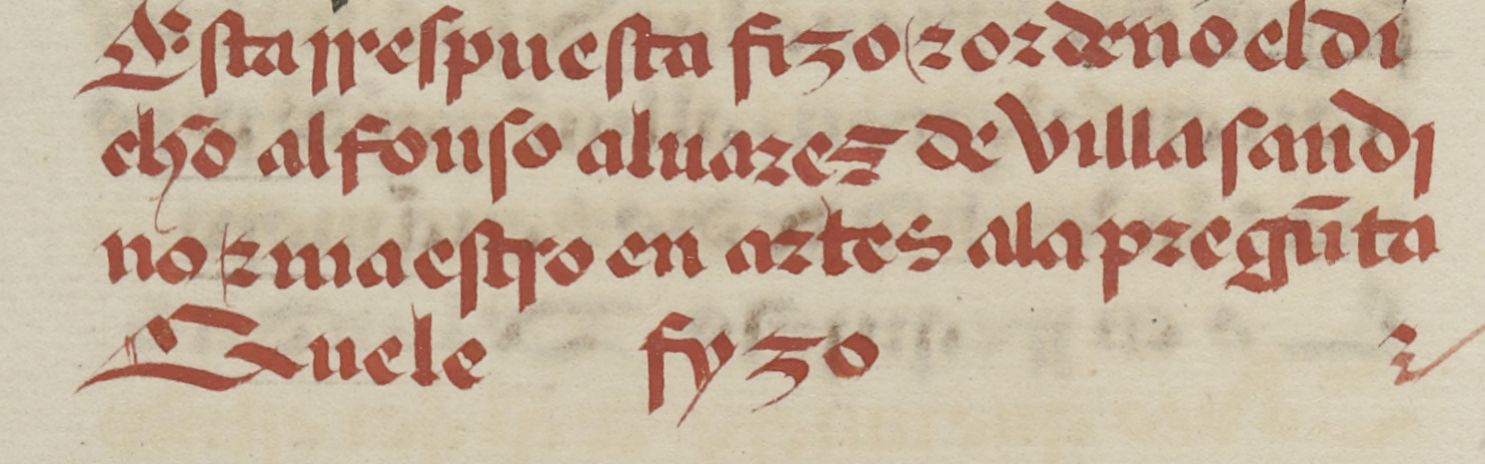 Esta rrespuesta fizo ⁊ ordeno el di
cho alfonso aluarez de villasandi
no ⁊ maestro en artes ala pregũta
Que le fyzo